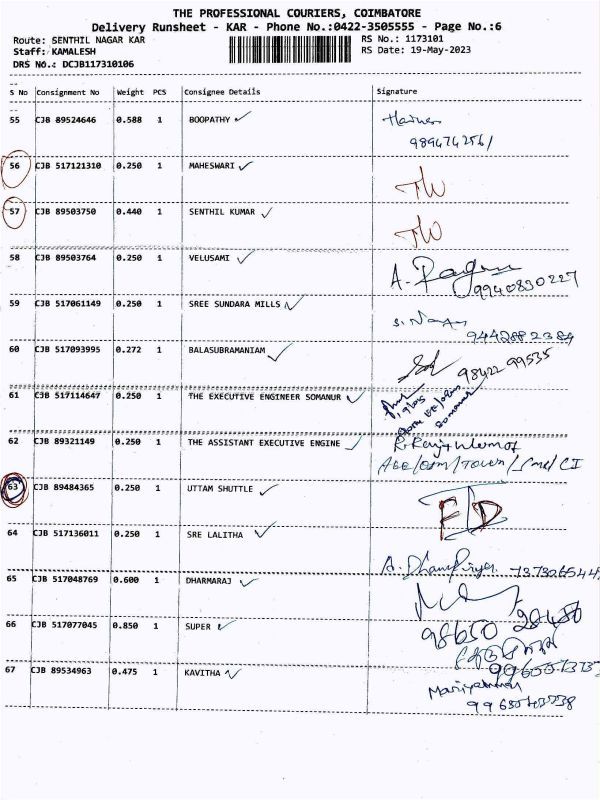 THE PROFESSIONAL COURIERS, COIMBATORE
Delivery Runsheet - KAR - Phone No.:0422-3505555 - Page No.:6
Route: SENTHIL NAGAR KAR
RS No.: 1173101
Staff: KAMALESH
RS Date: 19-May-2023
DRS No.: DCJB117310106
S No Consignment No Weight PCS Consignee Details Signature
55 CJB 89524646 0.588 1 BOOPATHY
9894742561
56 CJB 517121310 0.250 1 MAHESWARI
57 CJB 89503750 0.440 1 SENTHIL KUMAR
58 CJB 89503764 0.250 1 VELUSAMI A.
9940830227
59 CJB 517061149 0.250 1 SREE SUNDARA MILLS
9442882384
60 CJB 517093995 0.272 1 BALASUBRAMANIAM
98422 99535
61 CJB 517114647 0.250 1 THE EXECUTIVE ENGINEER SOMANUR
Somanur
62 CJB 89321149 0.250 1 THE ASSISTANT EXECUTIVE ENGINE
63 CJB 89484365 0.250 1 UTTAM SHUTTLE
64 CJB 517136011 0.250 1 SRE LALITHA
65 CJB 517048769 0.600 1 DHARMARAJ
66 CJB 517077045 0.850 1 SUPER
98650 28480
67 CJB 89534963 0.475 1 KAVITHA